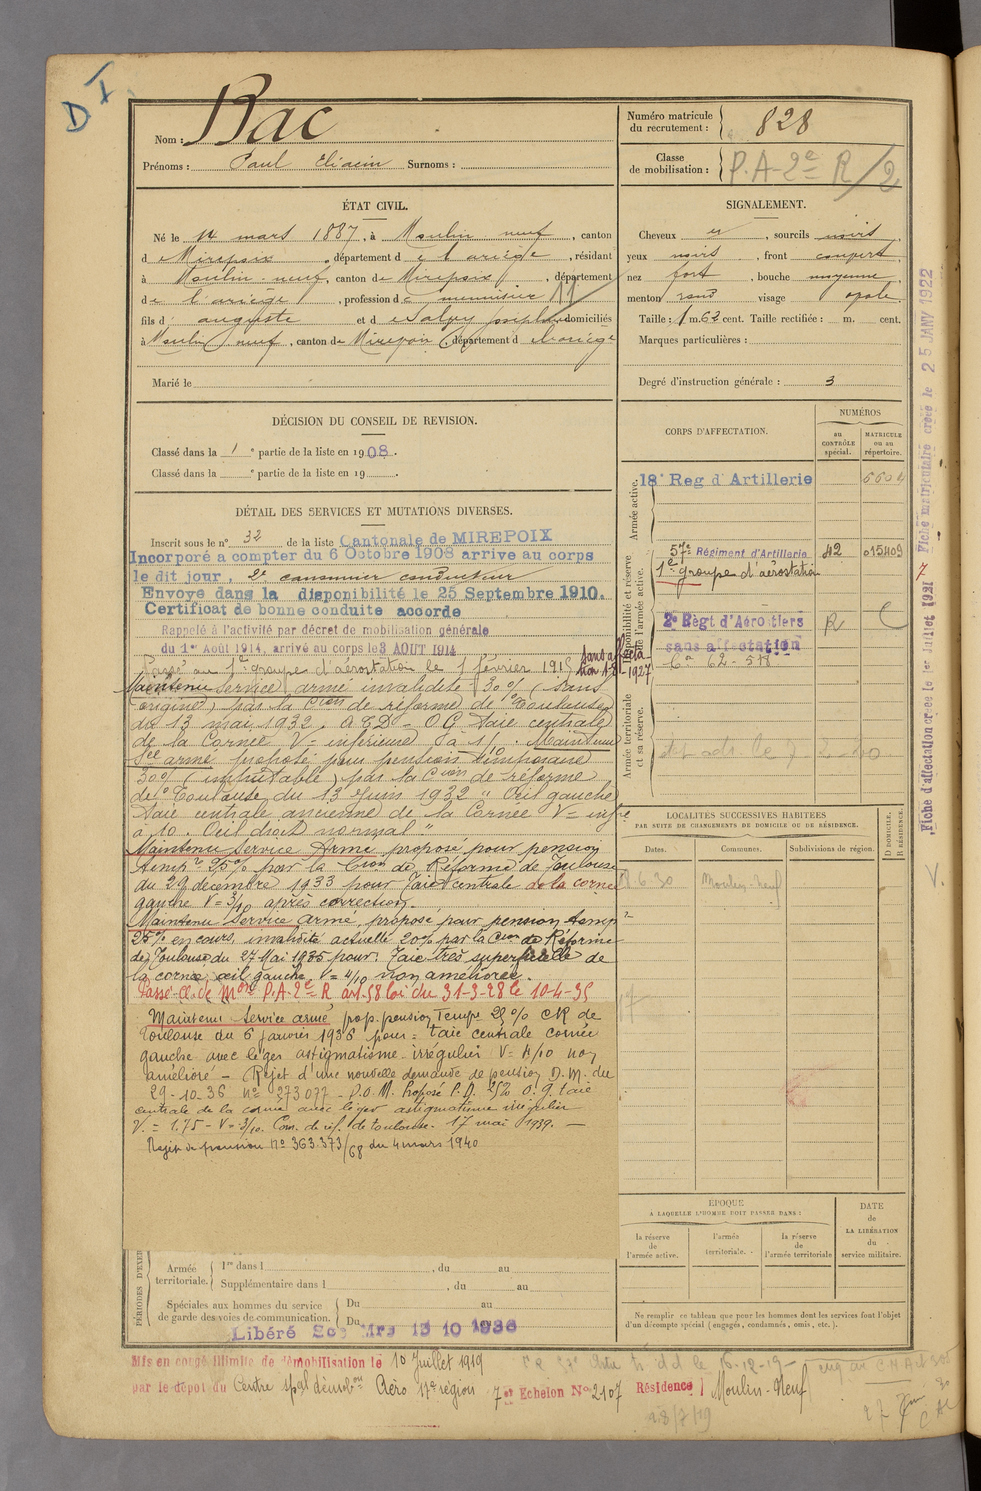 D I
Nom : Bac
Prénoms : Paul Eliacin Surnoms :
Numéro matricule du recrutement : 828
Classe de mobilisation : P.A-2e R/2
ÉTAT CIVIL.
Né le 14 mars 1887, à Moulin neuf, canton
de Mirepoix, département de l'ariége, résidant
à Moulin-neuf, canton de Mirepoix, département
de l'ariége, profession de menuisier 11
fils d' auguste et de domiciliés
à Moulin neuf, canton de Mirepoix, département d
Marié le
SIGNALEMENT.
Cheveux et, sourcils noirs,
yeux noirs, front
nez fort, bouche moyenne
menton rond visage ovale.
Taille : 1 m. 62 cent. Taille rectifiée : m. cent.
Marques particulières :
Degré d'instruction générale : 3
DÉCISION DU CONSEIL DE REVISION.
Classé dans la 1e partie de la liste en 1908.
Classé dans la e partie de la liste en 19 .
DÉTAIL DES SERVICES ET MUTATIONS DIVERSES.
Inscrit sous le n° 32 de la liste Cantonale de MIREPOIX
Incorporé a compter du 6 Octobre 1908 arrive au corps
le dit jour, 2e canonnier conducteur
Envoye dans la disponibilité le 25 Septembre 1910.
Certificat de bonne conduite accorde
Rappelé à l'activité par décret de mobilisation générale
du 1er Août 1914, arrivé au corps le 3 AOUT 1914
Passé au 1er groupe d'aérostation le 1 février 1915
sans affecta-
tion 1-8-1927
Maintenu service armé invalidité 30% (sans
origine) par la Cion de réforme de Toulouse
du 13 mai 1932. OG taie centrale
de la Cornée V= inférieure à 1/10. Maintenu
Sce armé proposé pour pension temporaire
30% (imputable) par la Cion de réforme
de Toulouse du 13 Juin 1932 "Œil gauche
taie centrale ancienne de la Cornée V= infre
à 10. Œil droit normal"
Maintenu Service Armé proposé pour pension
tempre 25% par la Cion de Réforme de Toulouse
du 29 decembre 1933 pour Taie centrale de la cornée
gauche V=3/10 après correction.
Maintenu Service armé, proposé pour pension temp
25% en cours, invalidité actuelle 20% par la Cion de Réforme
de Toulouse du 27 Mai 1935 pour: Taie très superficielle de
la cornée œil gauche. V= 4/10 non améliorée.
Passé Cl. de Mon P.A-2e R art.58 loi du 31-3-28 le 10-4-35
Maintenu Service armé prop. pension Tempe 25% CR de
Toulouse du 6 janvier 1936 pour: taie centrale cornée
gauche avec léger astigmatisme irrégulier V= 4/10 non
amélioré - Rejet d'une nouvelle demande de pension D.M. du
29-10-36 n° 273077 - P.O.M. Proposé P.D. 25% O.g. taie
centrale de la cornée avec léger astigmatisme irrégulier
V. = 1.75 - V= 3/10. Com. de réf. de toulouse. 17 mai 1939. -
Rejet de pension N° 363.373/68 du 4 mars 1940
CORPS D'AFFECTATION.
NUMÉROS
au CONTRÔLE spécial.
MATRICULE ou au répertoire.
Armée active.
18e Reg d'Artillerie 6604
Disponibilité et réserve de l'armée active.
57e Régiment d'Artillerie 42 015409
1er groupe d'aérostation
2e Règt d'Aérostiers R
sans affectation
Armée territoriale et sa réserve.
LOCALITES SUCCESSIVES HABITEES
PAR SUITE DE CHANGEMENTS DE DOMICILE OU DE RÉSIDENCE.
Dates. Communes. Subdivisions de région. D DOMICILE. R RÉSIDENCE.
6 30 Moulin-neuf
17
EPOQUE
A LAQUELLE L'HOMME DOIT PASSER DANS :
la réserve de l'armée active.
l'armée territoriale.
la réserve de l'armée territoriale
DATE de LA LIBÉRATION du service militaire.
Ne remplir ce tableau que pour les hommes dont les services font l'objet
d'un décompte spécial (engagés, condamnés, omis, etc.).
PÉRIODES D'EXER
Armée territoriale.
1re dans l , du au
Supplémentaire dans l , du au
Spéciales aux hommes du service
de garde des voies de communication.
Du au
Du au
Libéré Sce Mre 15 10 1936
Mis en congé illimité de démobilisation le 10 Juillet 1919
par le dépot du Centre spal démobon Aéro 17e région 7e Echelon N° 2107 Résidence Moulin-Neuf
28/7/19
Fiche d'affectation créée le 1er Juillet 1921 Fiche matriculaire créée le 25 JANV 1922